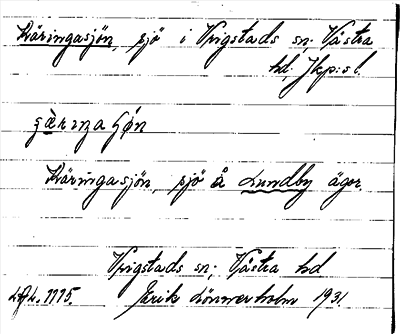 Käringasjön, sjö i Vrigstads sn; Västra
hd, Jkp:s l.
Käringasjön, sjö å Lundby ägor.
Vrigstads sn; Västra hd
Erik Lönnerholm 1931